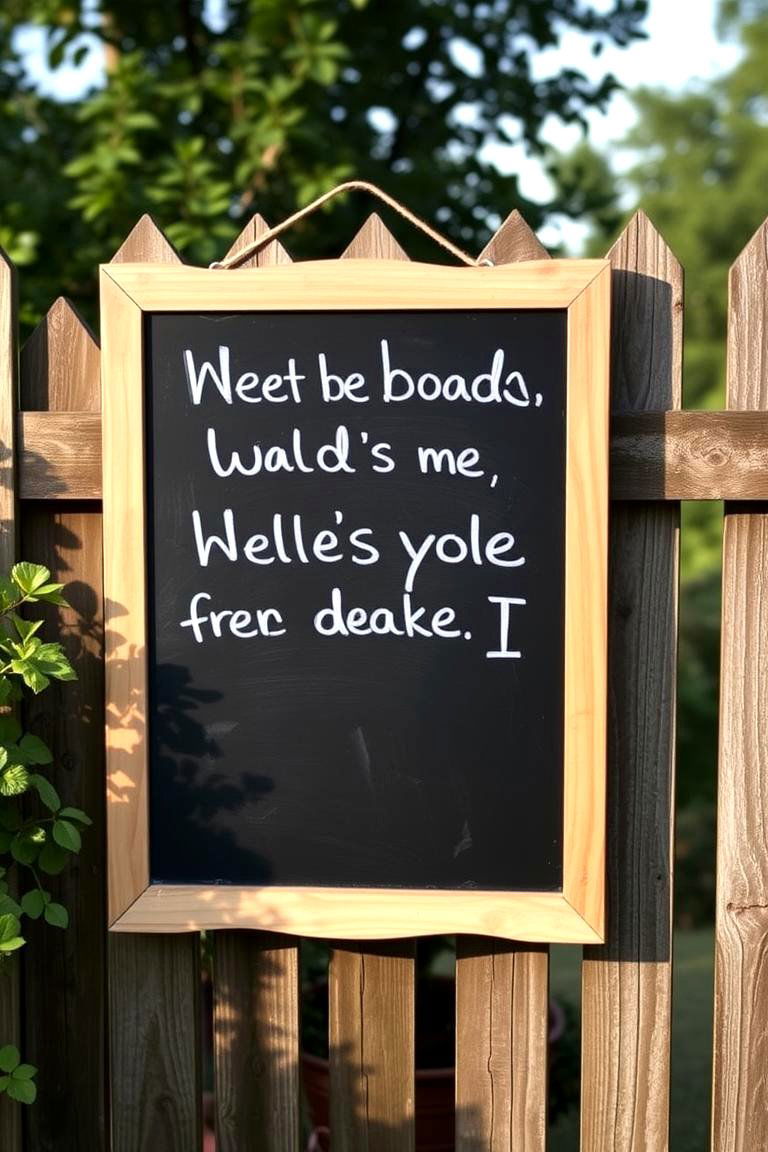 Weet be boada,
Wald's me,
Welle's yole
frer deake. I